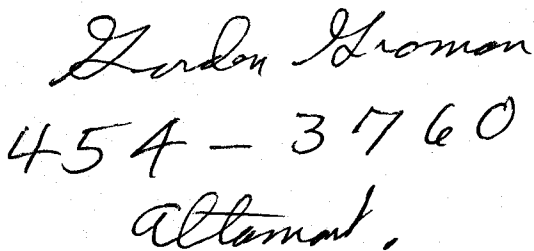 Gordon Groman
454 - 3760
Altamont.